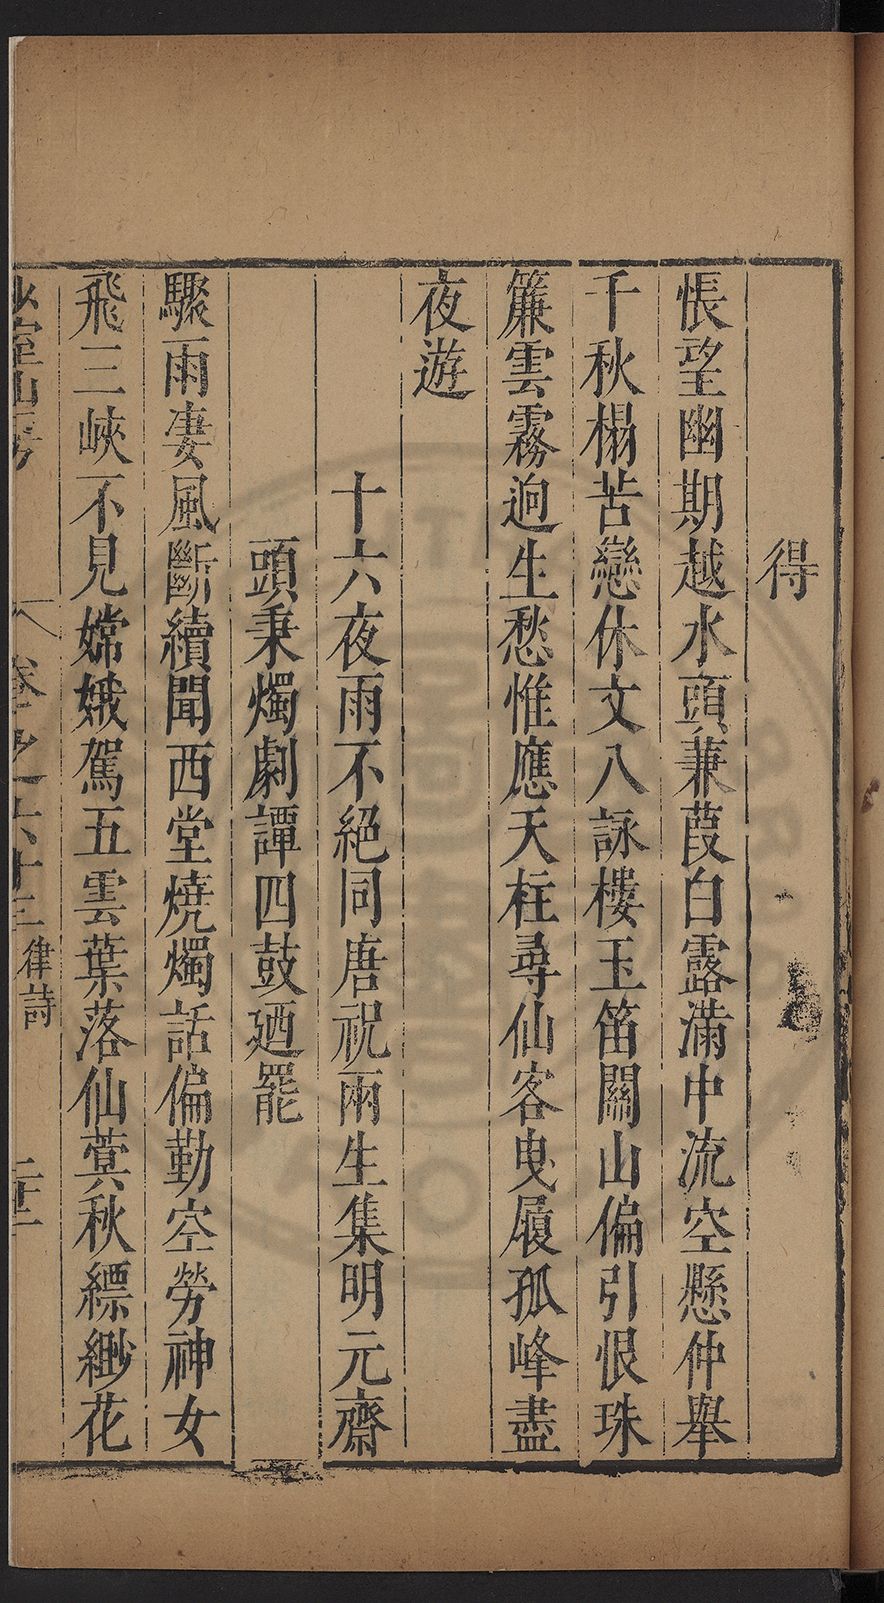 得
悵望幽期越水頭蒹葭白露滿中流空懸仲舉
千秋榻苦戀休文八詠樓玉笛關山偏引恨珠
簾雲霧迥生愁惟應天柱尋仙客曳履孤峰盡
夜遊
十六夜雨不絕同唐祝兩生集明元齋
頭秉燭劇譚四鼓廼罷
驟雨凄風斷續聞西堂燒燭話偏勤空勞神女
飛三峽不見嫦娥駕五雲葉落仙蓂秋縹緲花
山房 卷之六十三 律詩